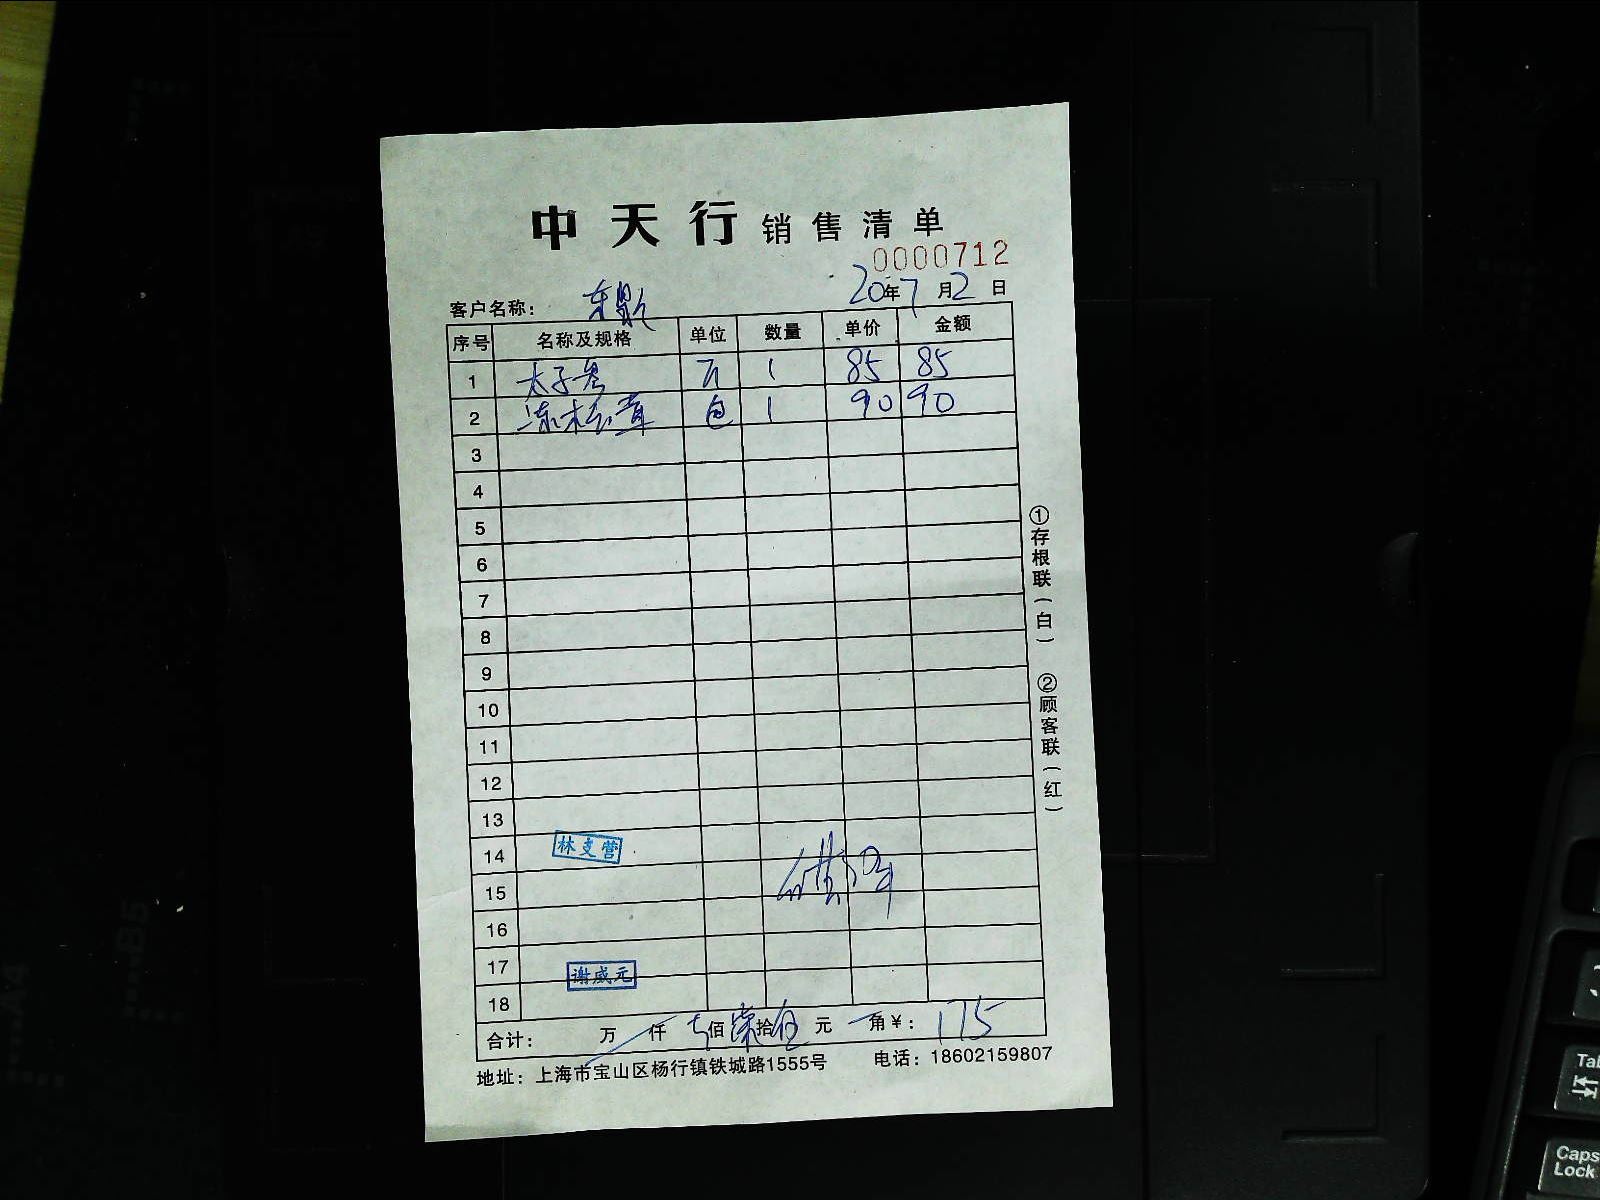 中天行销售清单
0000712
客户名称: 20年7月2日
序号 名称及规格 单位 数量 单价 金额
1 太子参 斤 1 85 85
2 冻松茸 包 1 90 90
3
4
5
6
7
8
9
10
11
12
13
14 林支营
15
16
17 谢咸元
18
合计: 万 仟 壹佰柒拾伍元 角¥: 175
地址: 上海市宝山区杨行镇铁城路1555号 电话: 18602159807
①存根联(白) ②顾客联(红)
B5
A4
Tab
Caps
Lock